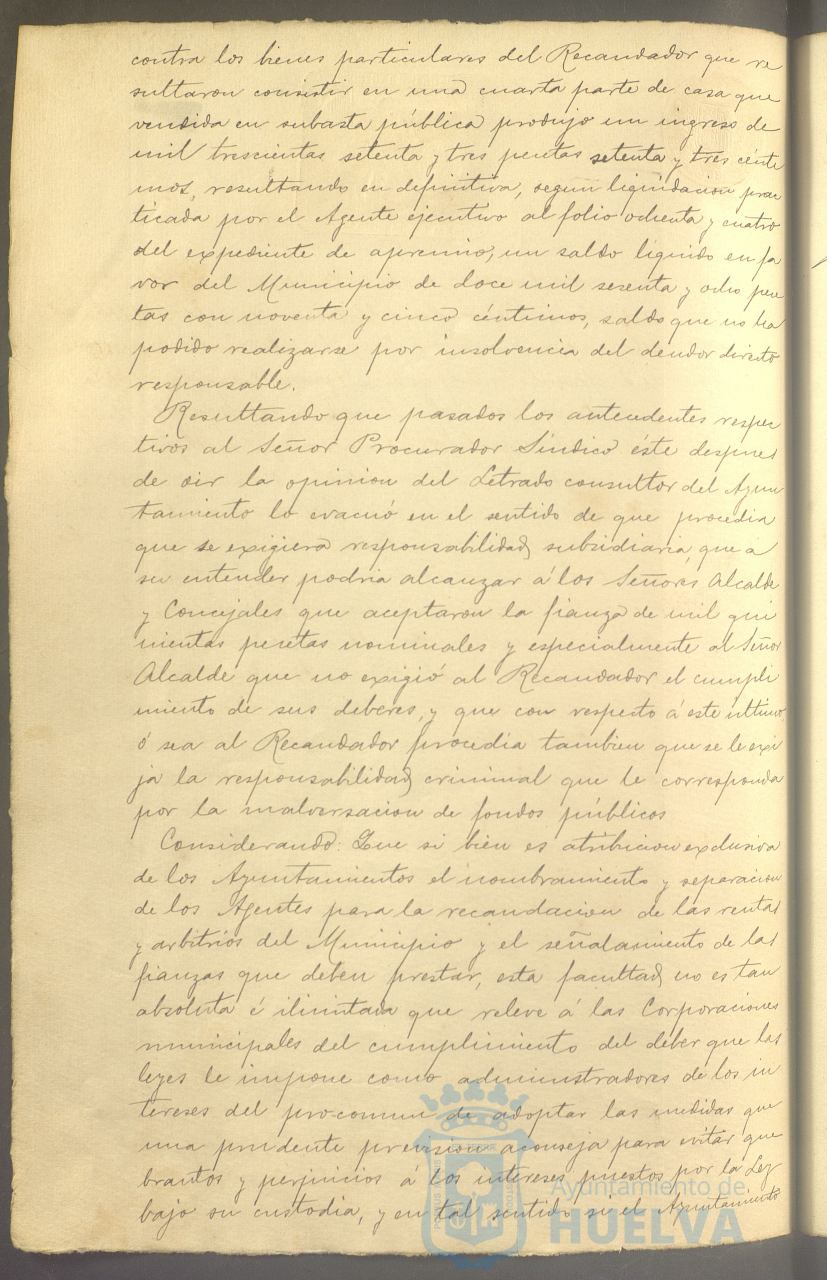 contra los bienes particulares del Recaudador que re
sultaron consistir en una cuarta parte de casa que
vendida en subasta pública produjo un ingreso de
mil trescientas setenta y tres pesetas setenta y tres cénti
mos, resultando en definitiva, segun liquidacion prac
ticada por el Agente ejecutivo al folio ochenta y cuatro
del expediente de apremio, un saldo líquido en fa
vor del Municipio de doce mil sesenta y ocho pese
tas con noventa y cinco céntimos, saldo que no ha
podido realizarse por insolvencia del deudor directo
responsable.
Resultando que pasados los antecedentes respec
tivos al Señor Procurador Síndico éste despues
de oir la opinion del Letrado consultor del Ayun
tamiento lo evacuó en el sentido de que procedia
que se exigiera responsabilidad subsidiaria que a
su entender podria alcanzar á los Señores Alcalde
y Concejales que aceptaron la fianza de mil qui
nientas pesetas nominales y especialmente al Señor
Alcalde que no exigió al Recaudador el cumpli
miento de sus deberes, y que con respecto á este último
ó sea al Recaudador procedia tambien que se le exi
ja la responsabilidad criminal que le corresponda
por la malversacion de fondos públicos
Considerando: Que si bien es atribucion exclusiva
de los Ayuntamientos el nombramiento y separacion
de los Agentes para la recaudacion de las rentas
y arbitrios del Municipio y el señalamiento de las
fianzas que deben prestar, esta facultad no es tan
absoluta é ilimitada que releve á las Corporaciones
municipales del cumplimiento del deber que las
leyes le impone como administradores de los in
tereses del procomun de adoptar las medidas que
una prudente prevision aconseja para evitar que
brantos y perjuicios á los intereses puestos por la Ley
bajo su custodia, y en tal sentido si el Ayuntamiento
Ayuntamiento de
HUELVA